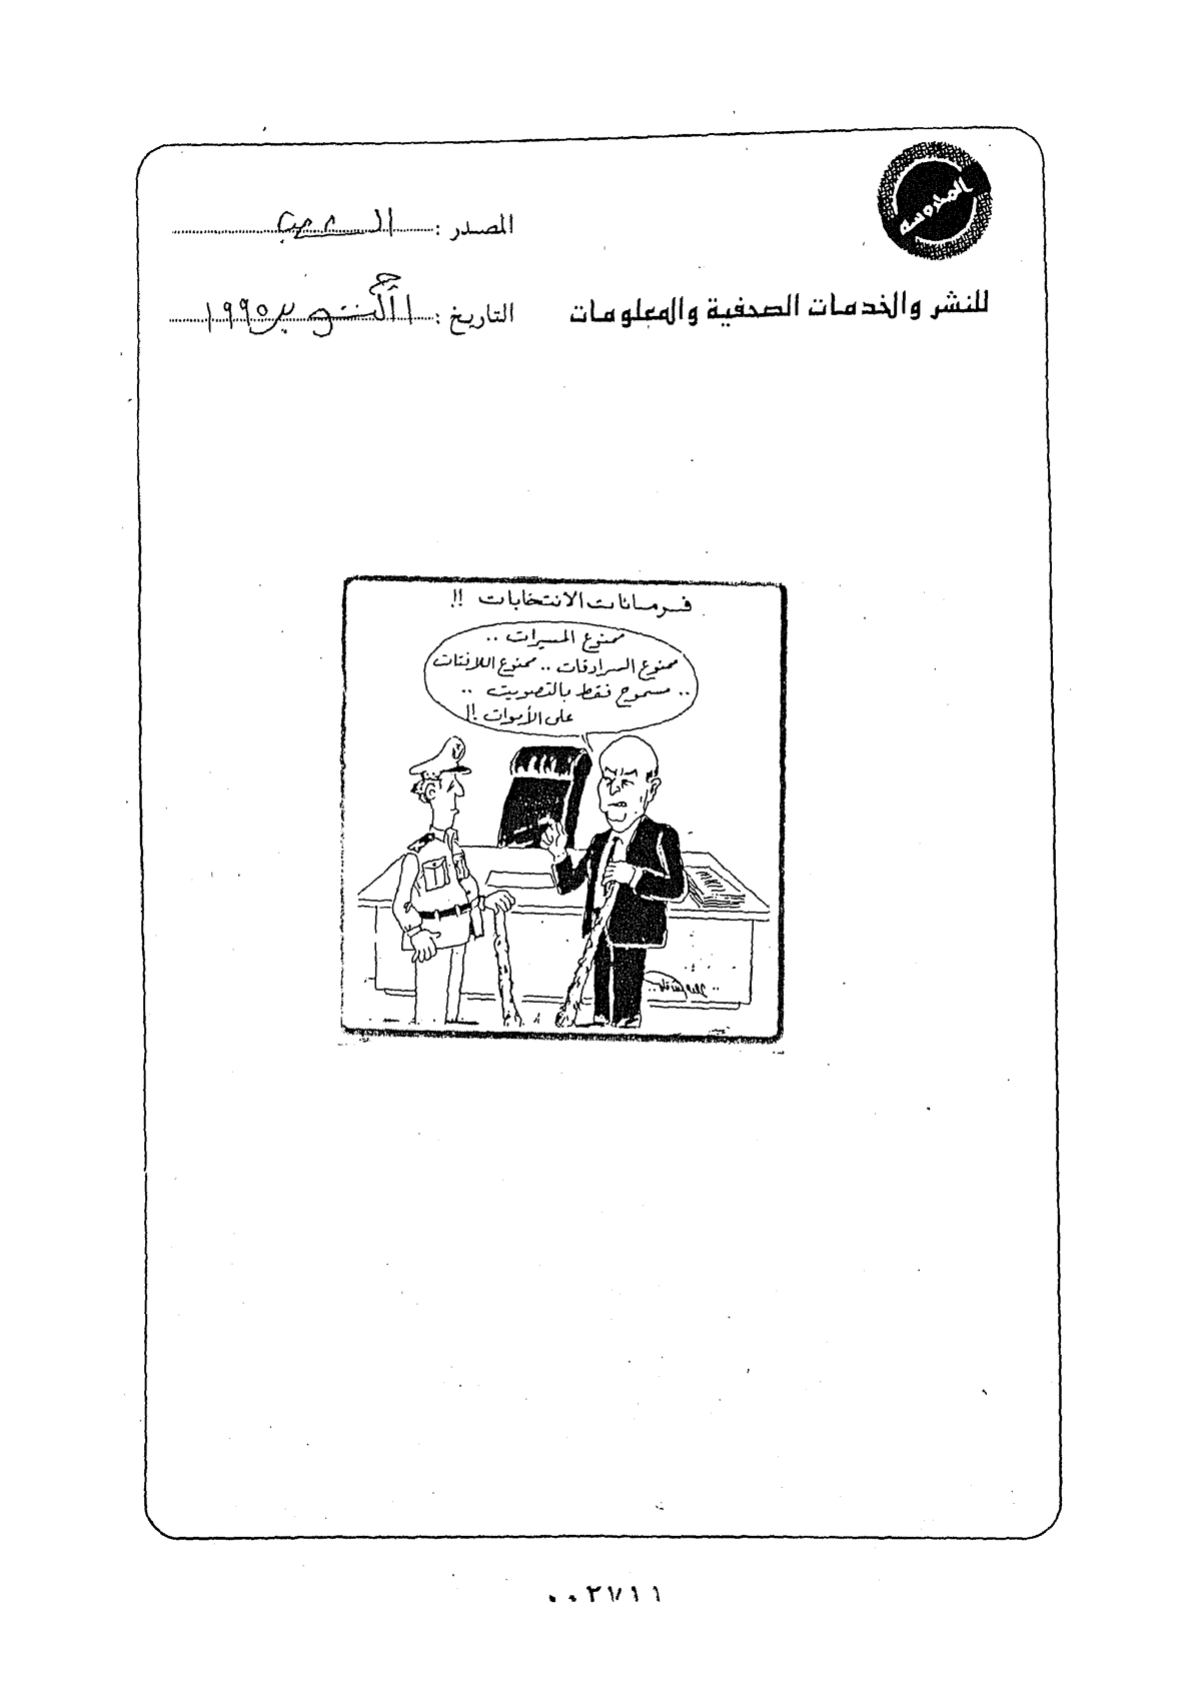 المحروسة
المصدر :
للنشر والخدمات الصحفية والمعلومات
التاريخ : ١ أكتوبر ١٩٩٥
فرمانات الانتخابات !!
ممنوع المسيرات ..
ممنوع السرادقات .. ممنوع اللافتات
.. مسموح فقط بالتصويت ..
على الأموات !!
٠٠٢٧١١